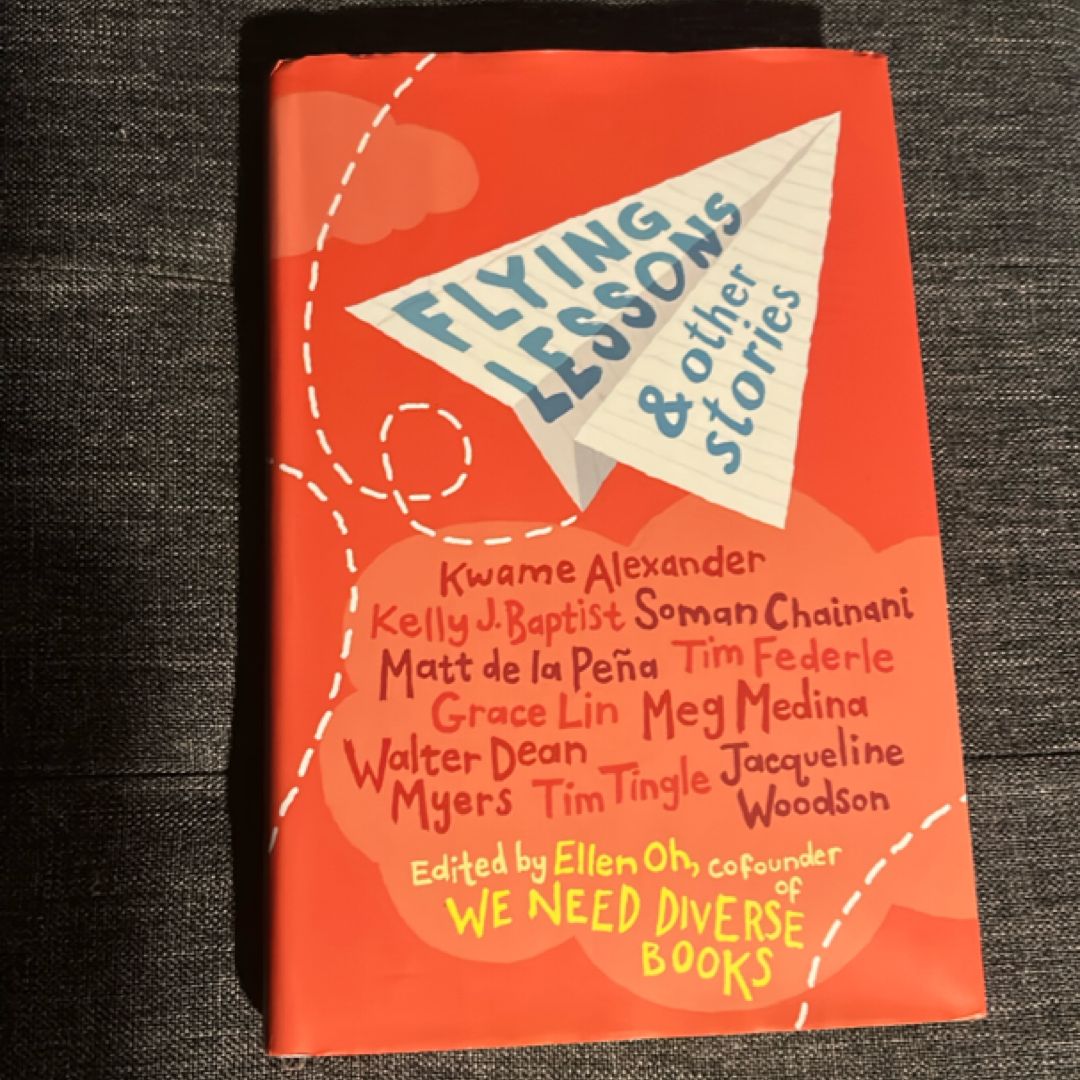 FLYING
LESSONS
& other
stories
Kwame Alexander
Kelly J. Baptist Soman Chainani
Matt de la Peña Tim Federle
Grace Lin Meg Medina
Walter Dean Jacqueline
Myers Tim Tingle Woodson
Edited by Ellen Oh, cofounder
of
WE NEED DIVERSE
BOOKS